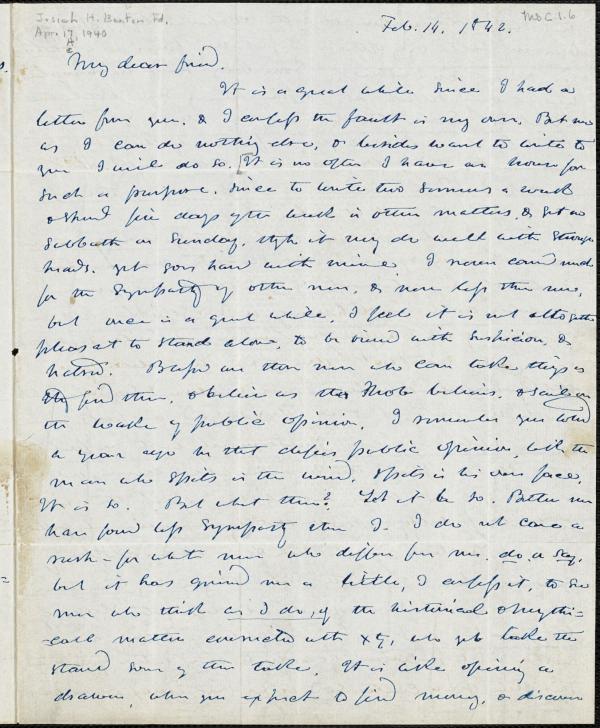 Josiah H. Benton Fd.
Apr. 17, 1940
Ms C.1.6
Feb. 14. 1842.
My dear friend.
It is a great while since I had a
letter from you. & I confess the fault is my own. But now
as I can do nothing else, & besides want to write to
you I will do so. It is no often I have an hour for
such a purpose. Since to write two sermons a week
& spend five days of the week in other matters, & get no
Sabbath on Sunday, tho' it may do well with stronger
heads. yet goes hard with mine. I never cared much
for the sympathy of other men, & never less than now,
but once in a great while, I feel it is not altogether
pleasant to stand alone, to be viewed with suspicion, &
hatred. Blessed are those men who can take things as
they find them, & believe as the mob believes. & sail in
the wake of public opinion. I remember you told
a year ago that defies public opinion, like the
man who spits in the wind, spits in his own face.
It is so. But what then? Let it be so. Better men
have found less sympathy than I. I do not care a
rush for what men who differ from me. do. or say.
but it has grieved me a little, I confess it, to see
men who think as I do, of the historical & mythi=
=call matters connected with Xty, who yet take the
stand some of them take. It is like opening a
drawer, when you expect to find money, & discover